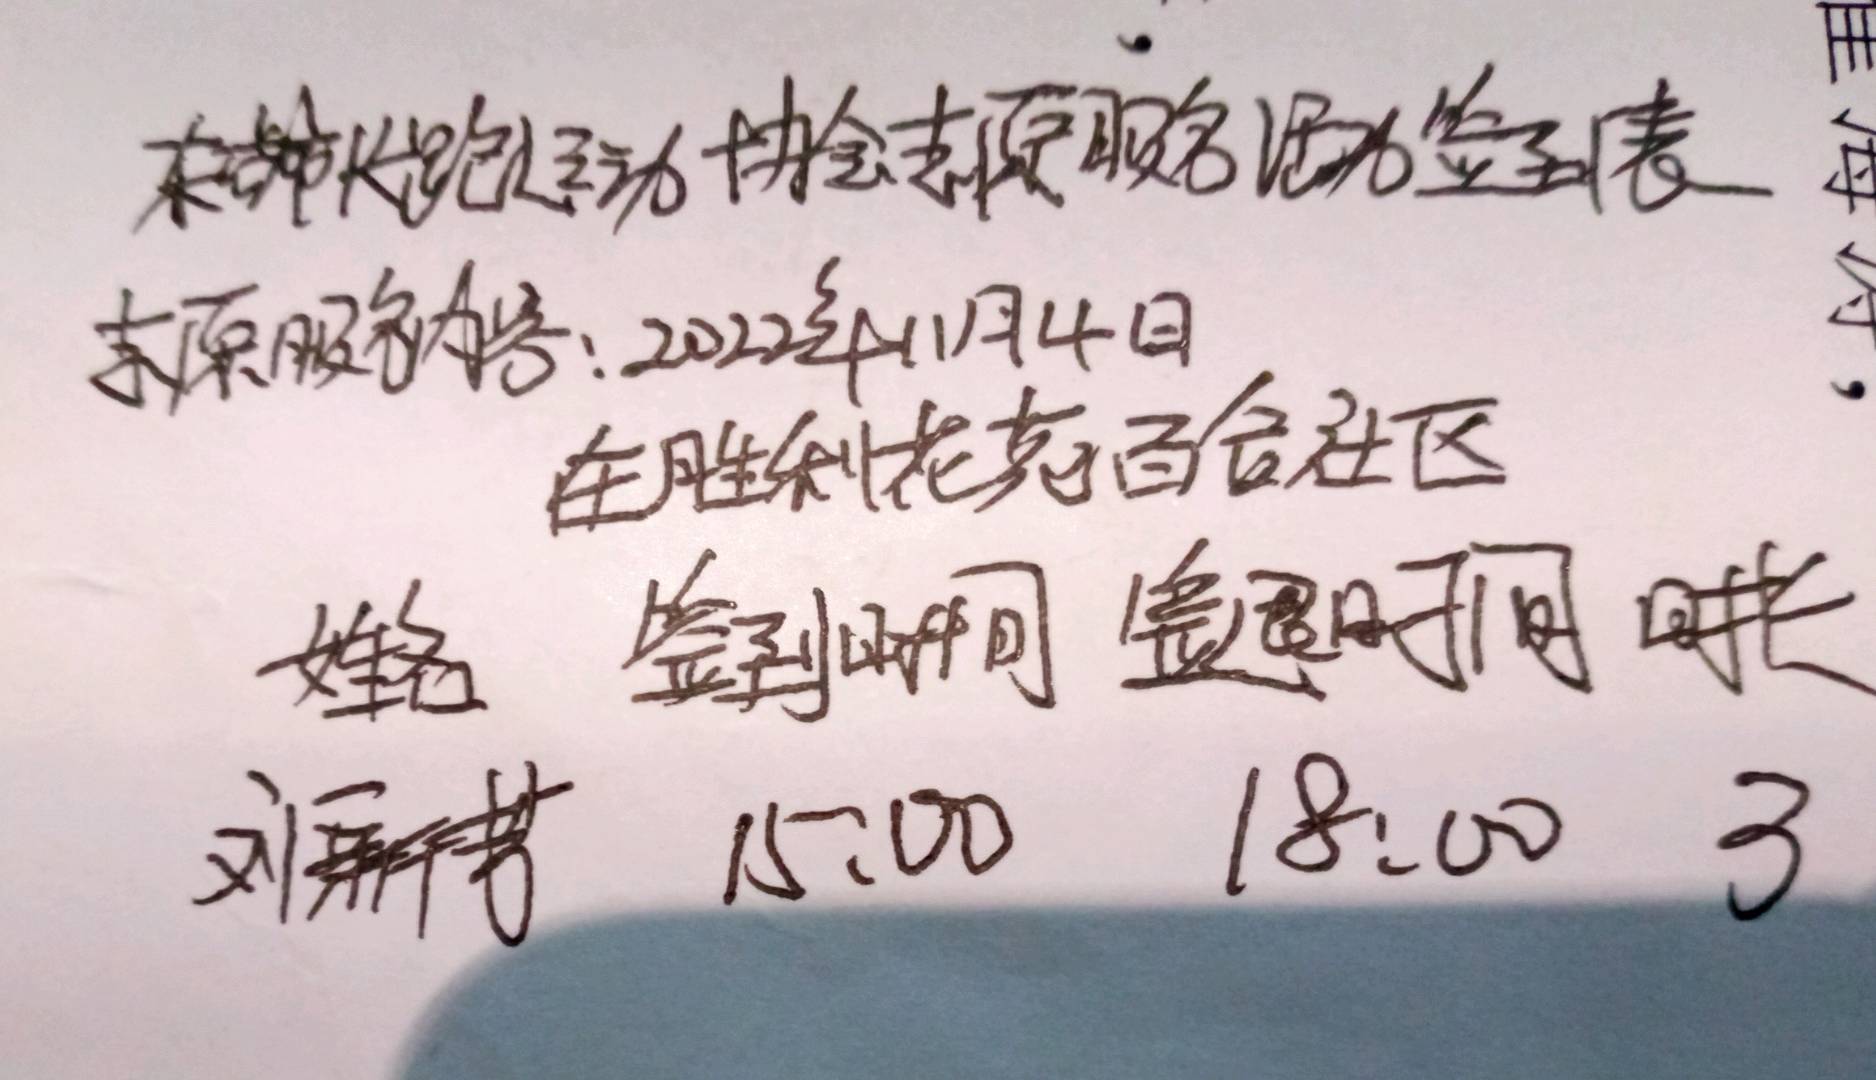 跑运动协会志愿服务活动签到表
志愿服务内容：2022年11月4日
在胜利花苑百合社区
姓名 签到时间 签退时间 时长
刘新芳 15:00 18:00 3